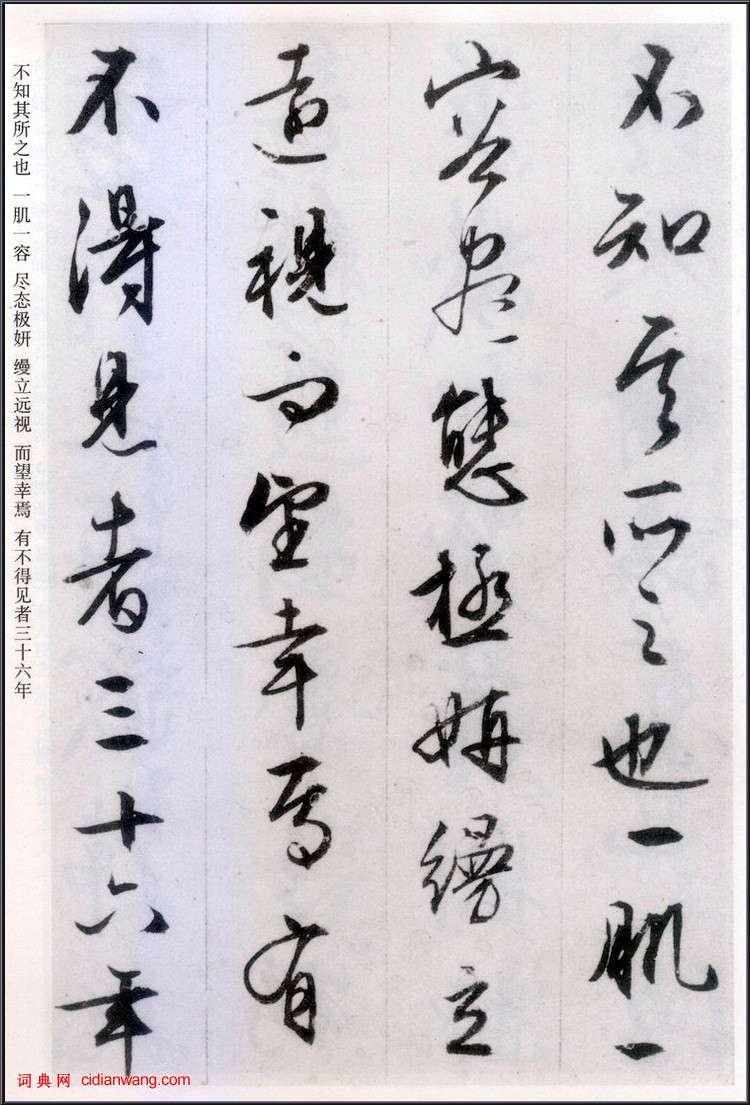 不知其所之也一肌一
容尽態極妍縵立
遠視而望幸焉有
不得見者三十六年
不知其所之也 一肌一容 尽态极妍 缦立远视 而望幸焉 有不得见者三十六年
词典网 cidianwang.com